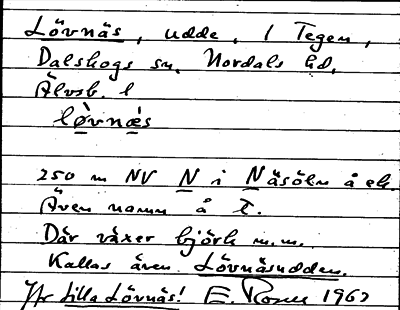 Lövnäs, udde, i Tegen,
Dalskogs sn, Nordals hd,
Älvsb. l
løvnæs
250 m NV N i Näsöln å ek.
Även namn å t.
Där växer björk m.m.
Kallas även Lövnäsudden.
Jfr Lilla Lövnäs! E. Rosen 1967